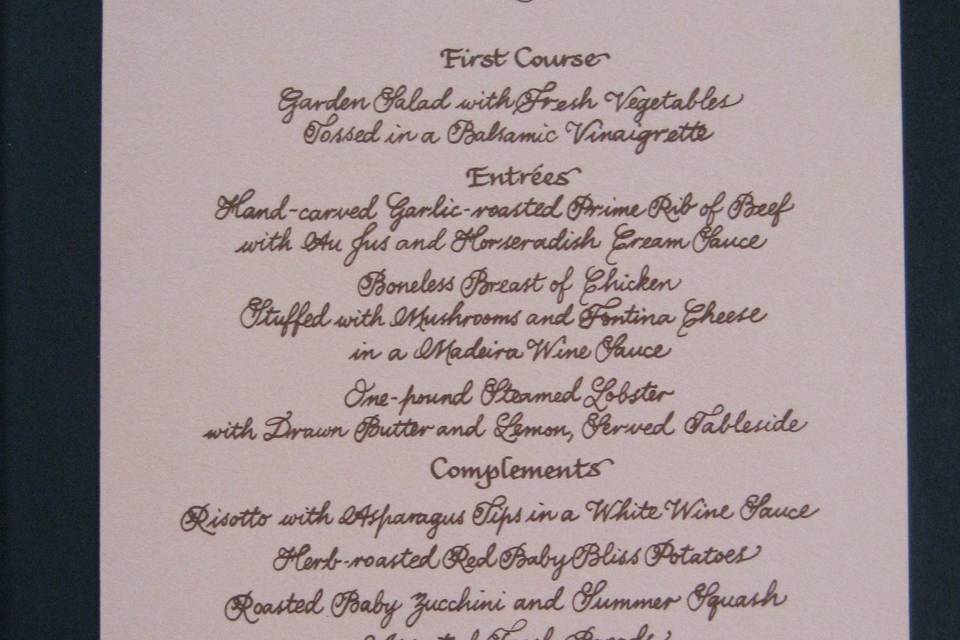 First Course
Garden Salad with Fresh Vegetables
Tossed in a Balsamic Vinaigrette
Entrées
Hand-carved Garlic-roasted Prime Rib of Beef
with Au Jus and Horseradish Cream Sauce
Boneless Breast of Chicken
Stuffed with Mushrooms and Fontina Cheese
in a Madeira Wine Sauce
One-pound Steamed Lobster
with Drawn Butter and Lemon, Served Tableside
Complements
Risotto with Asparagus Tips in a White Wine Sauce
Herb-roasted Red Baby Bliss Potatoes
Roasted Baby Zucchini and Summer Squash
Assorted Fresh Breads